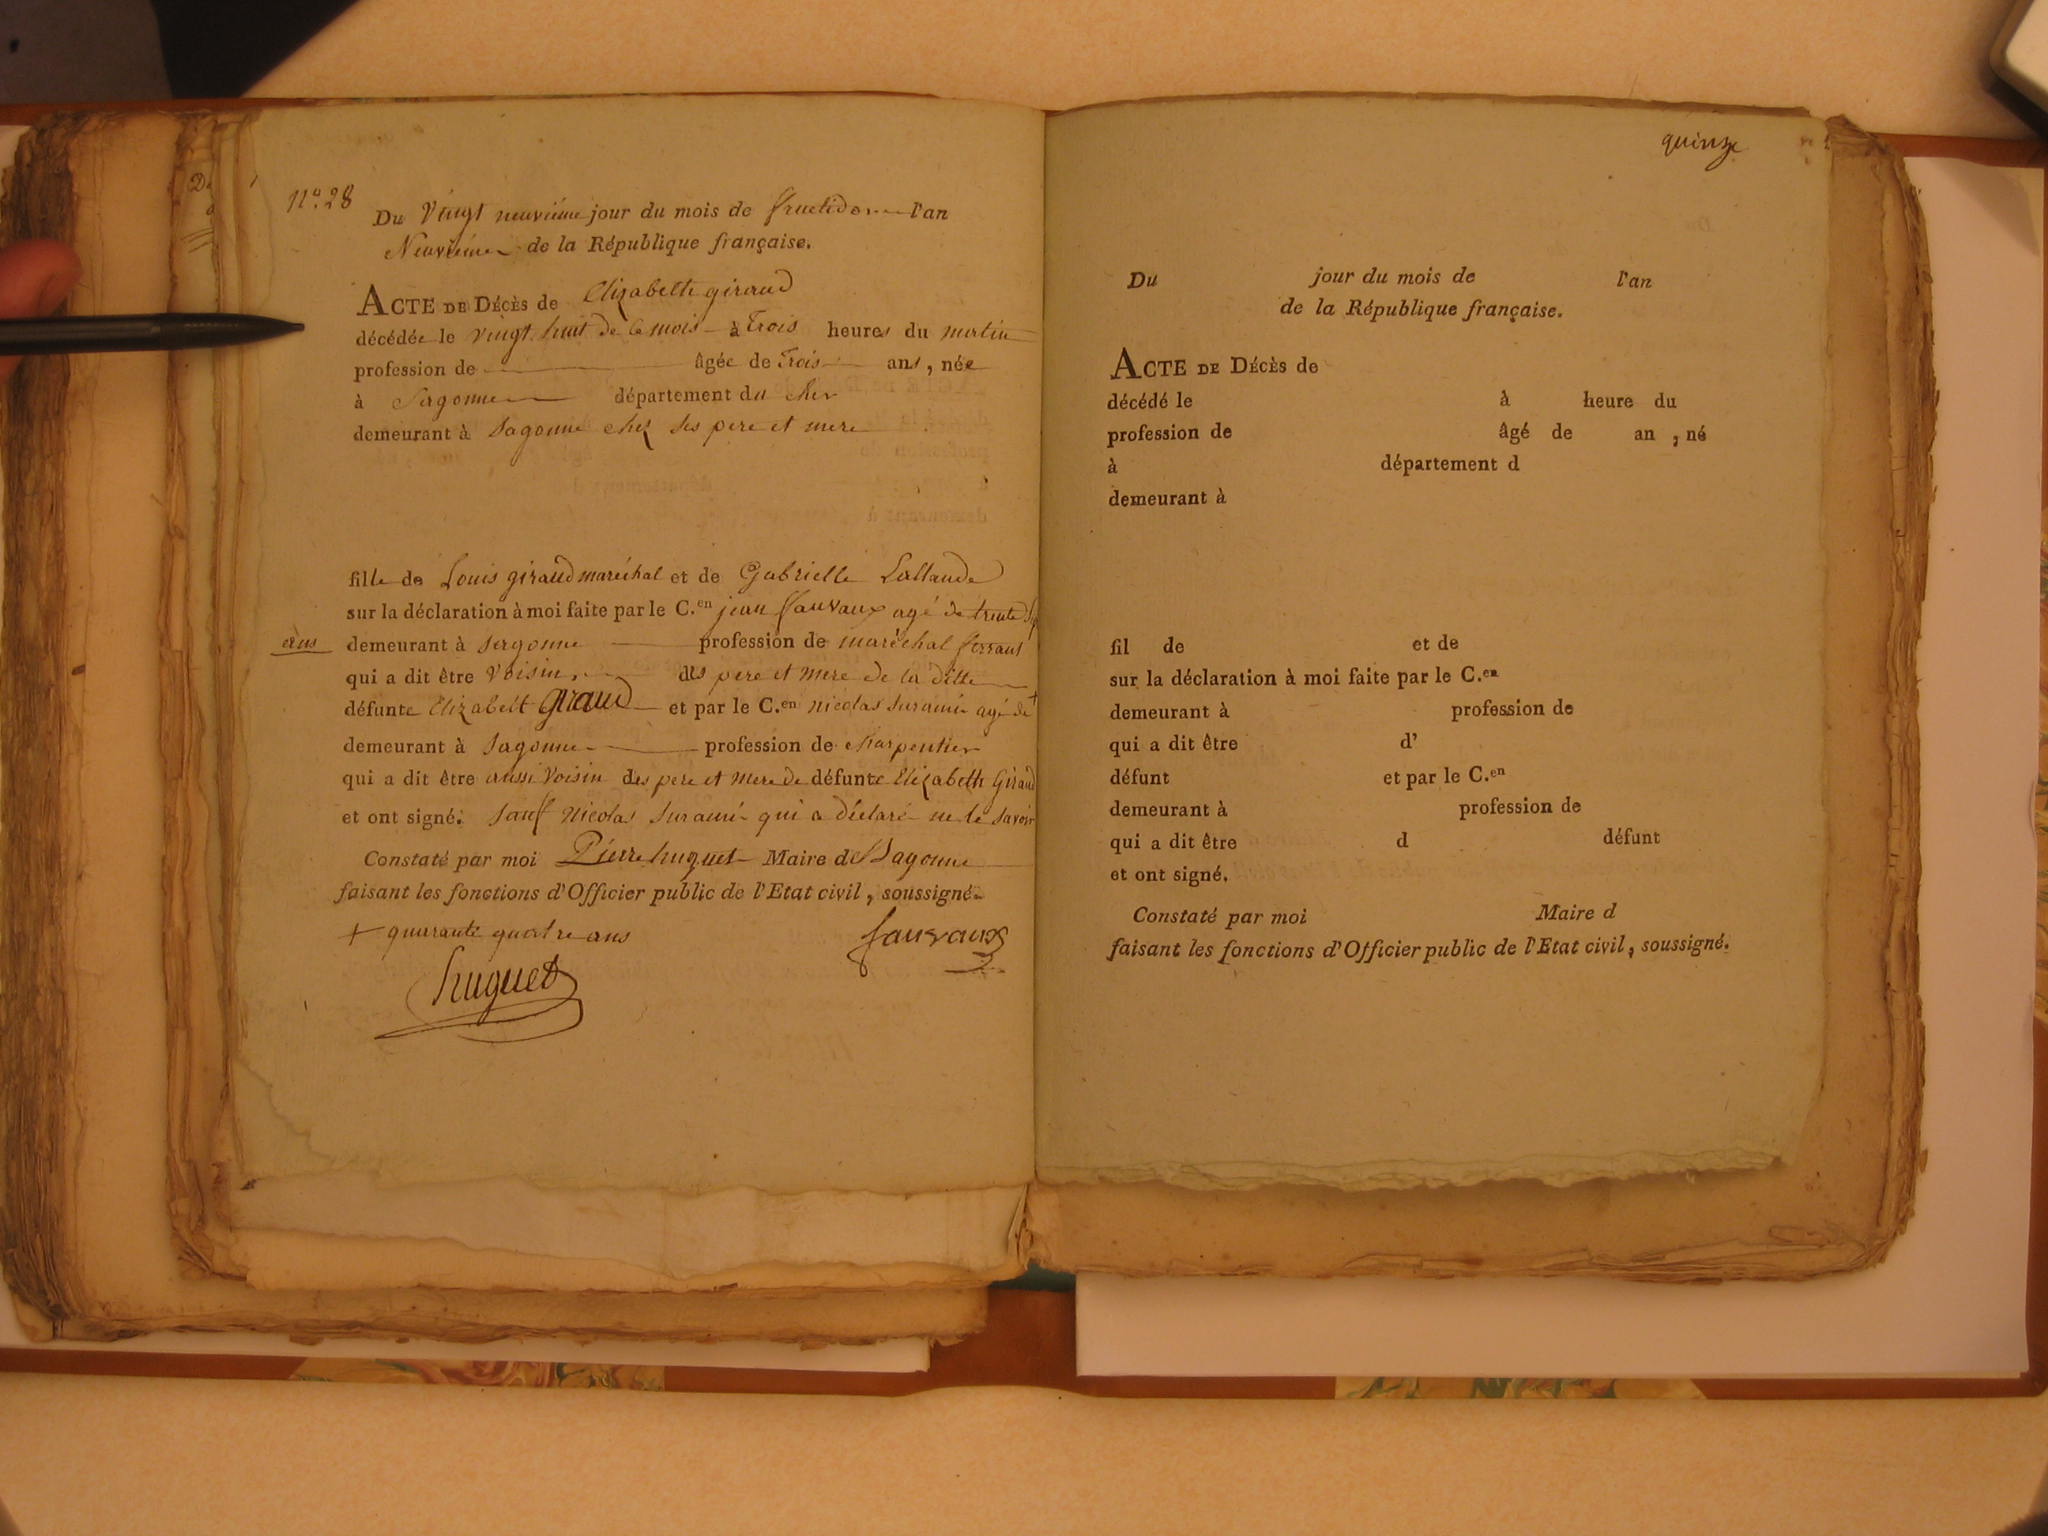 n.o 28
Du Vingt neuvième jour du mois de fructidor l'an
Neuvième de la République française.
ACTE DE DÉCÈS de Elizabeth giraud
décédée le vingt huit de ce mois à Trois heures du matin
profession de âgée de Trois ans, née
à Sagonne département du cher
demeurant à Sagonne chez ses pere et mere
fille de Louis giraud maréchal et de Gabrielle Lallande
sur la déclaration à moi faite par le C.en jean fauvaux agé de trente
ans demeurant à sagonne profession de maréchal ferrant
qui a dit être voisin des pere et mere de la ditte
défunte Elizabelt Giraud et par le C.en nicolas surami agé de +
demeurant à Sagonne profession de charpentier
qui a dit être aussi Voisin des pere et mere de défunte Elizabeth Giraud
et ont signé. sauf Nicolas surami qui a déclaré ne le savoir
Constaté par moi Pierre huguet Maire de Sagonne
faisant les fonctions d'Officier public de l'Etat civil, soussigné.
+ quarante quatre ans
fauvaux
huguet
quinze
Du jour du mois de l'an
de la République française.
ACTE DE DÉCÈS de
décédé le à heure du
profession de âgé de an , né
à département d
demeurant à
fil de et de
sur la déclaration à moi faite par le C.en
demeurant à profession de
qui a dit être d'
défunt et par le C.en
demeurant à profession de
qui a dit être d défunt
et ont signé.
Constaté par moi Maire d
faisant les fonctions d'Officier public de l'Etat civil, soussigné.